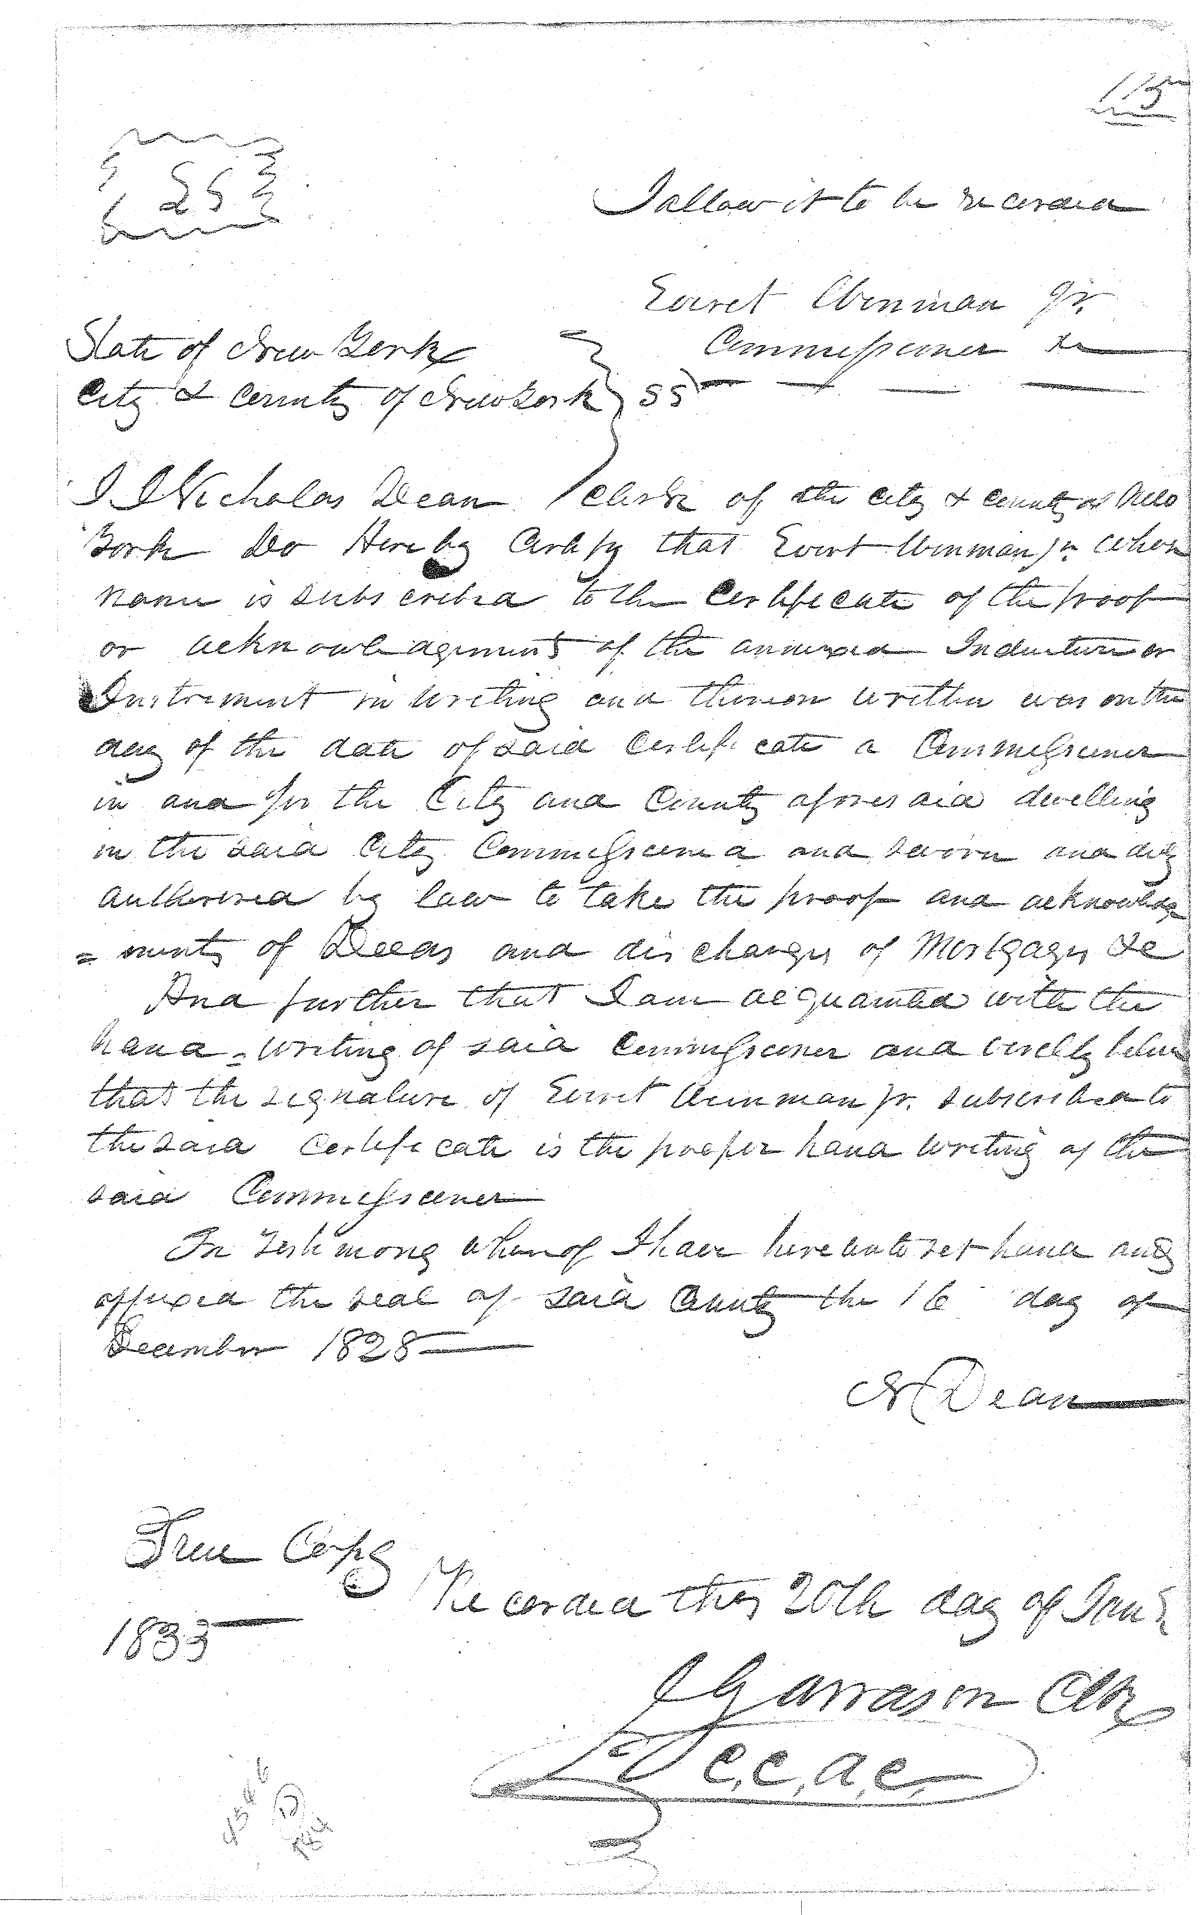 115
I allow it to be recorded
Everet Wenman Jr.
Commissioner &c
State of New York
City & County of New York } SS
I Nicholas Dean Clerk of the City & County of New
York Do Hereby Certify that Evert Wenman Jr. whose
name is subscribed to the Certificate of the proof
or acknowledgement of the annexed Indenture or
Instrument in writing and thereon written was on the
day of the date of said Certificate a Commissioner
in and for the City and County aforesaid dwelling
in the said City Commissioned and sworn and duly
authorised by law to take the proof and acknowledge
= ments of Deeds and discharges of Mortgages &c
And further that I am acquainted with the
hand = writing of said Commissioner and verelly believe
that the signature of Everet Wenman Jr. subscribed to
the said Certificate is the proper hand writing of the
said Commissioner
In Testimony whereof I have hereunto set hand and
affixed the seal of said County the 16 day of
December 1828
N Dean
True Copy
Recorded this 20th day of Jan
1833
J Garrason Clk
C.C.A.C.